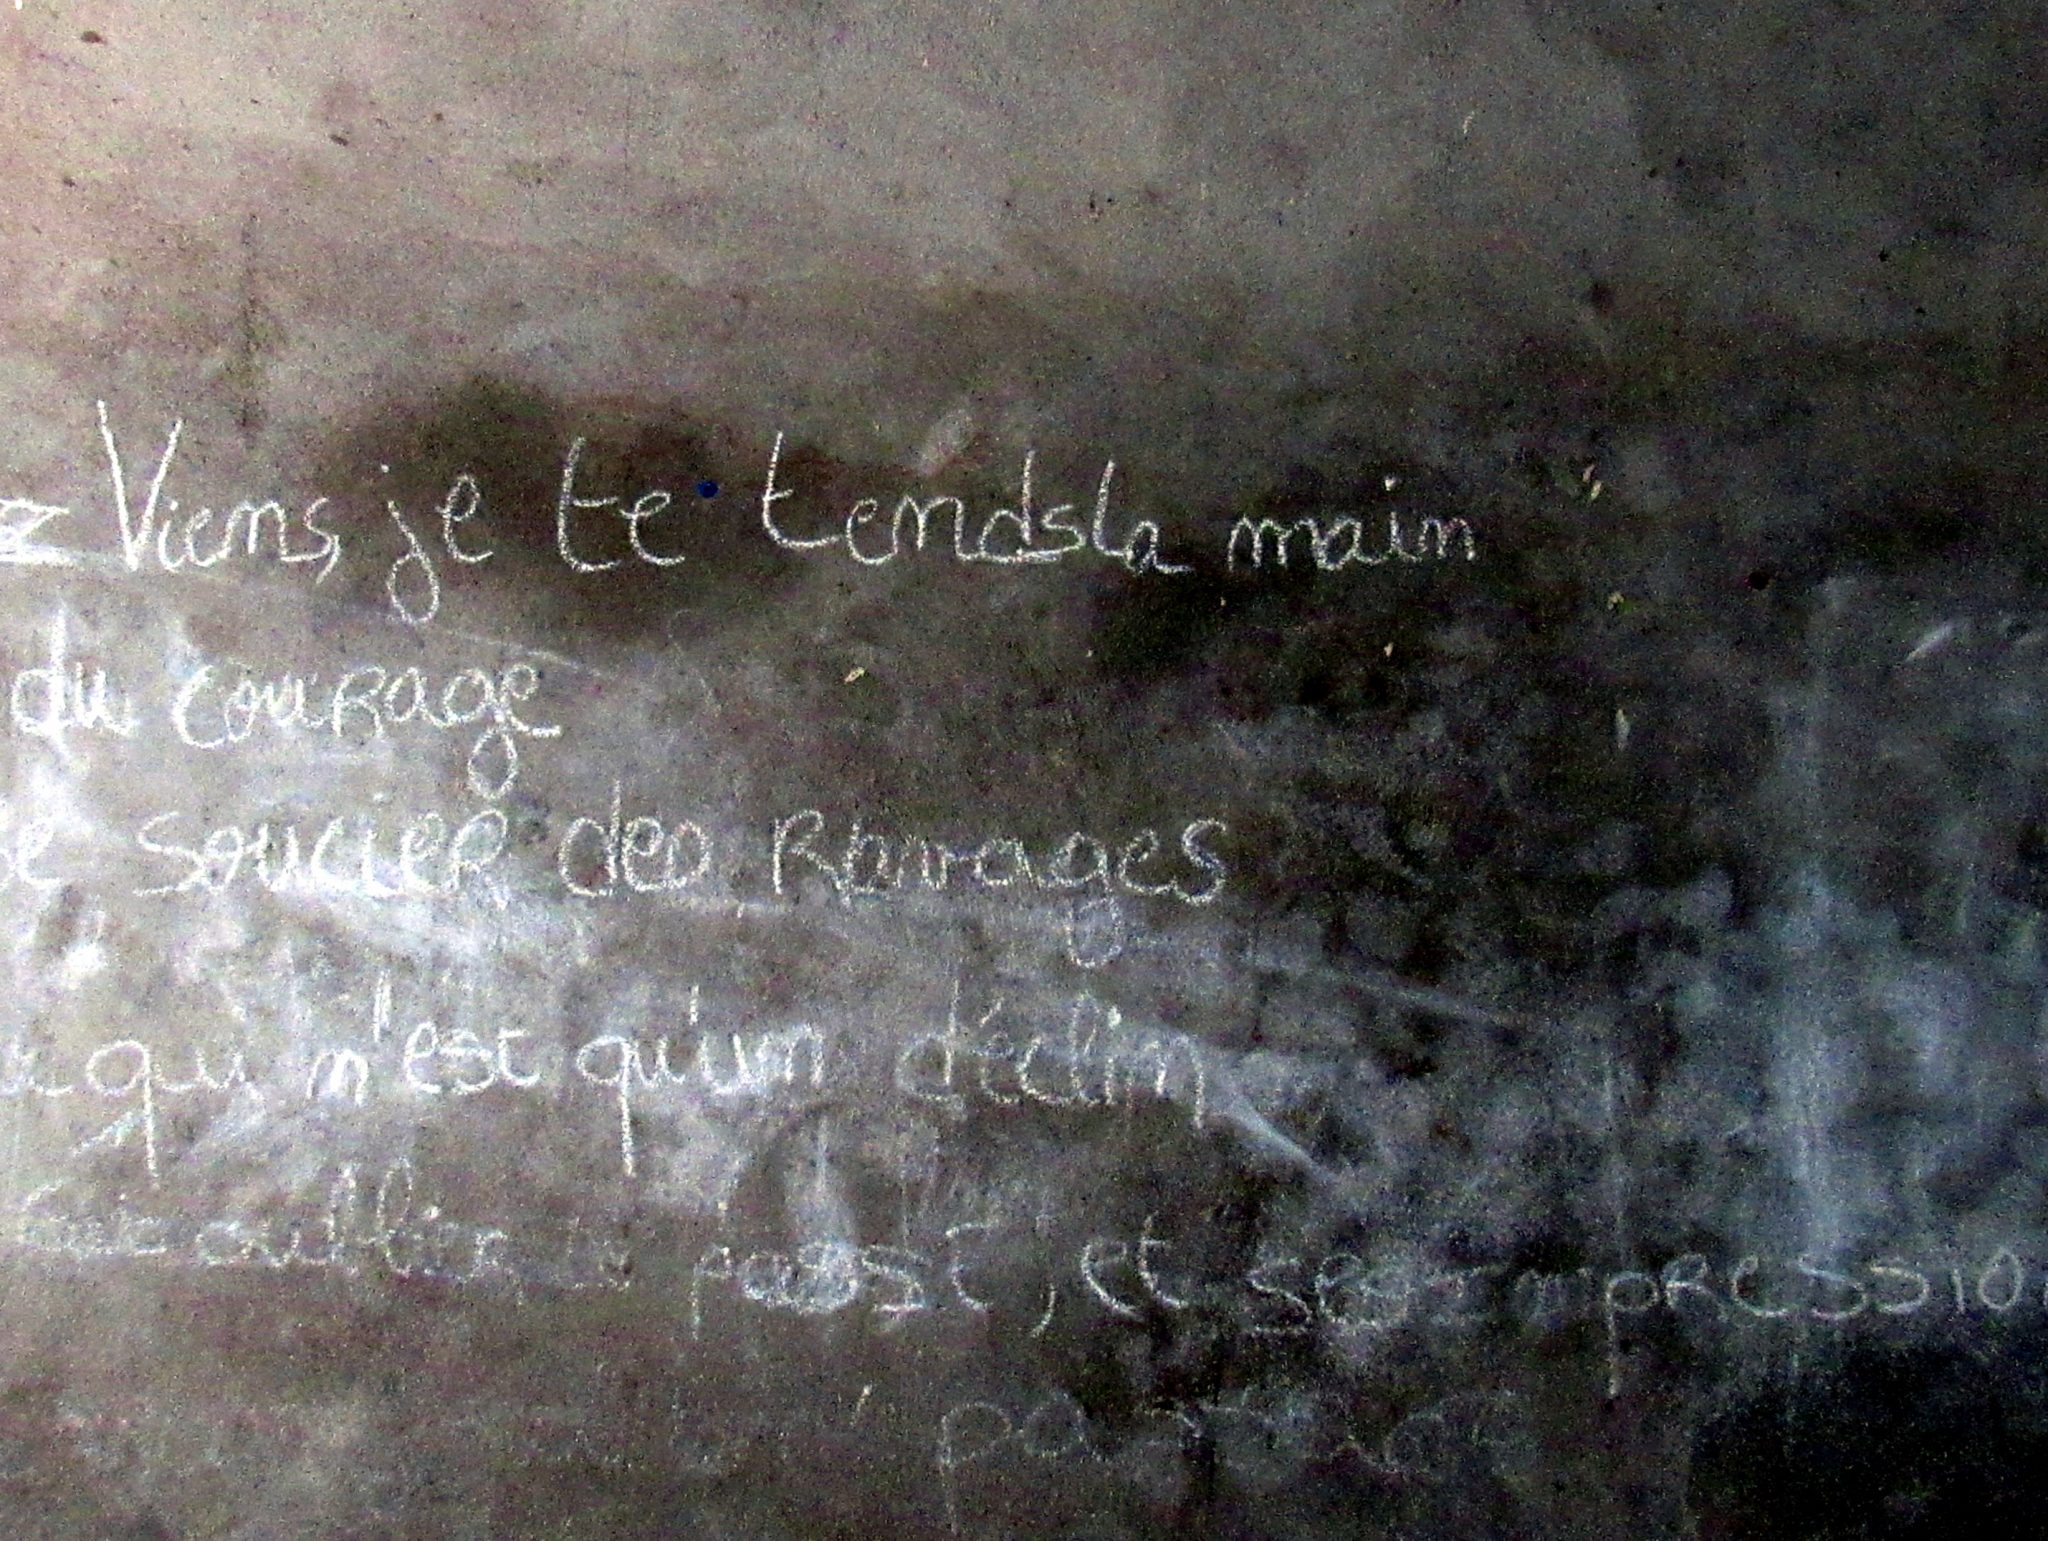 z Viens, je te tends la main
du courage
se soucier des Ravages
qui n'est qu'un déclin
passé, et ses impression